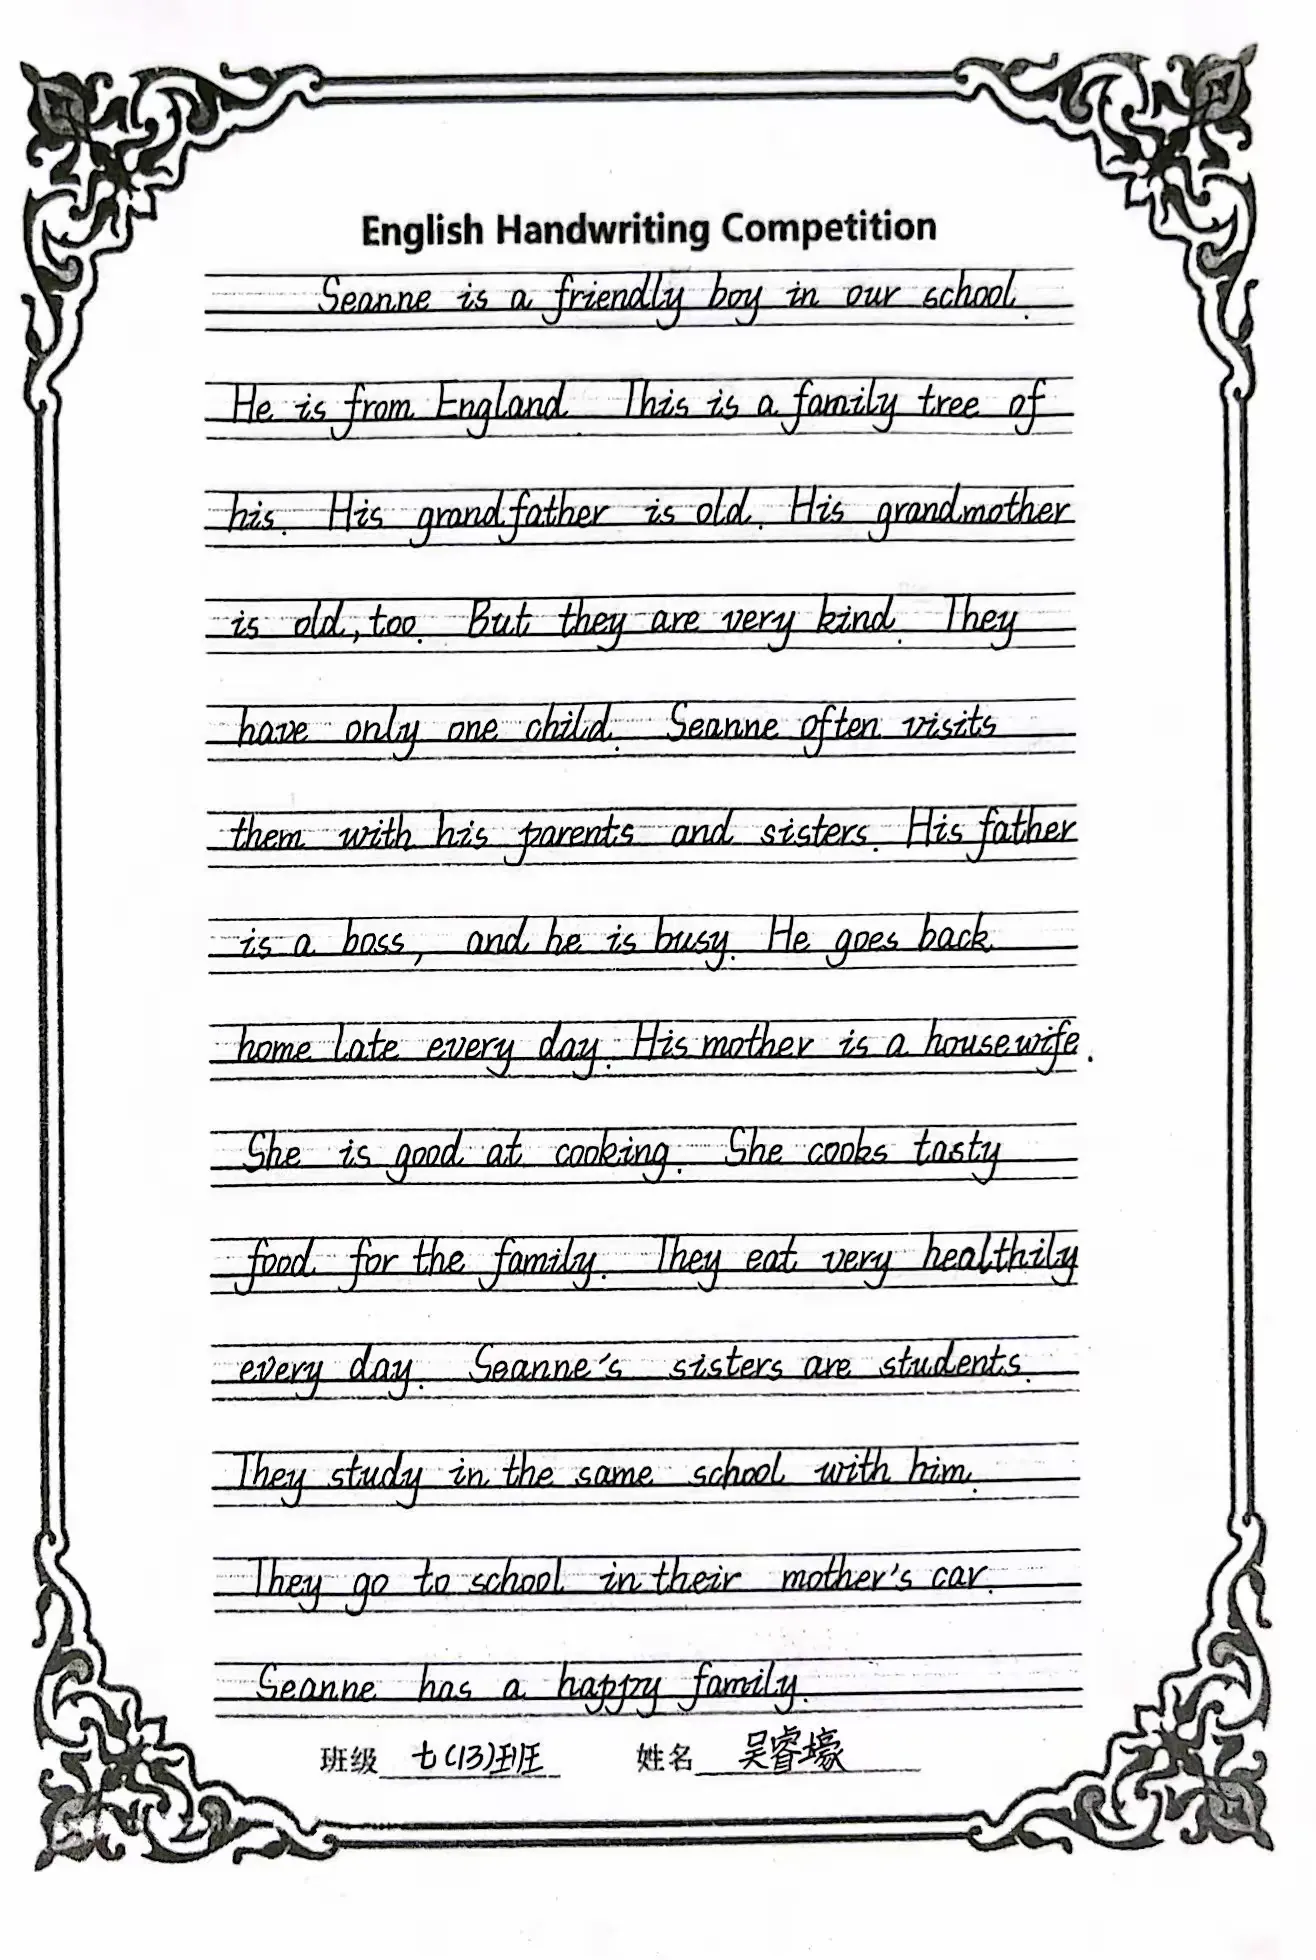 English Handwriting Competition
Seanne is a friendly boy in our school.
He is from England. This is a family tree of
his. His grandfather is old. His grandmother
is old, too. But they are very kind. They
have only one child. Seanne often visits
them with his parents and sisters. His father
is a boss, and he is busy. He goes back
home late every day. His mother is a housewife.
She is good at cooking. She cooks tasty
food for the family. They eat very healthily
every day. Seanne's sisters are students.
They study in the same school with him.
They go to school in their mother's car.
Seanne has a happy family.
班级 七(13)班 姓名 吴睿壕